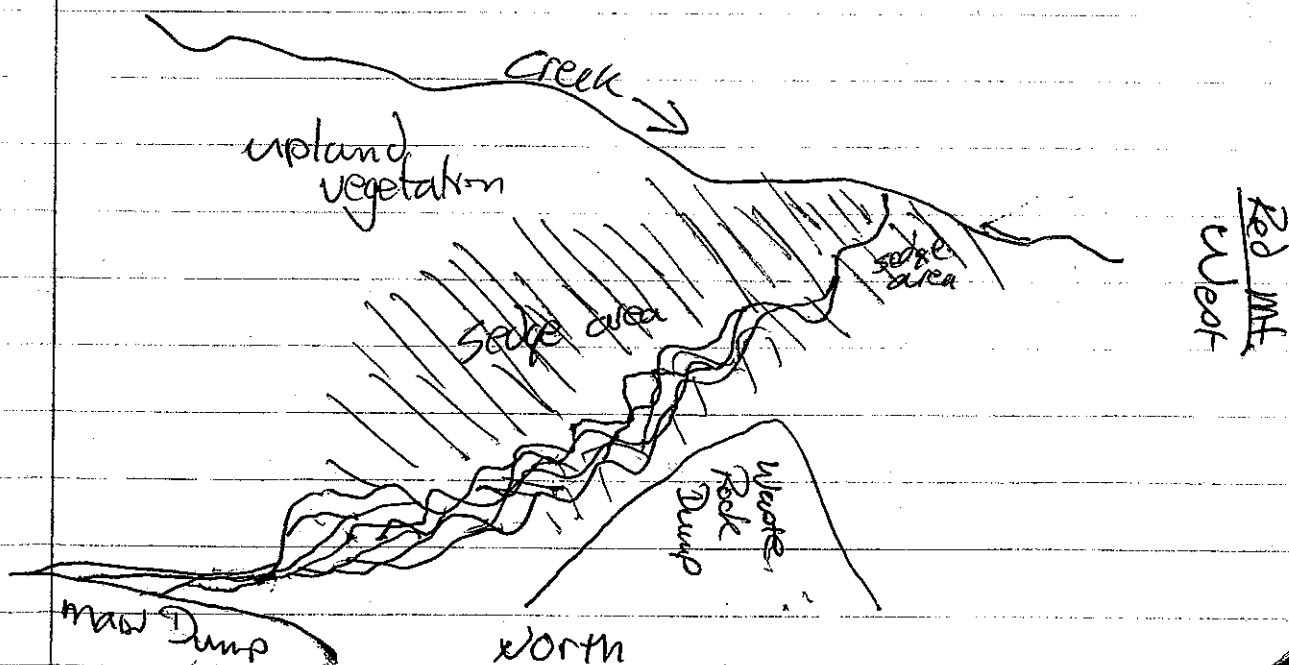 Creek
upland
vegetation
Red Mt.
West
sedge
area
sedge area
Waste
Rock
Dump
Main Dump
North